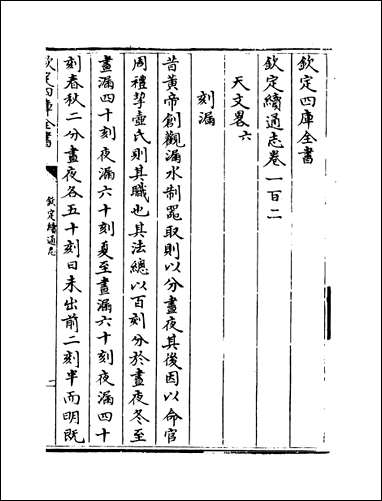 欽定四庫全書
欽定續通志卷一百二
天文畧六
刻漏
昔黄帝創觀漏水制器取則以分晝夜其後因以命官
周禮挈壺氏則其職也其法總以百刻分於晝夜冬至
晝漏四十刻夜漏六十刻夏至晝漏六十刻夜漏四十
刻春秋二分晝夜各五十刻日未出前二刻半而明既
欽定四庫全書
欽定續通志
一